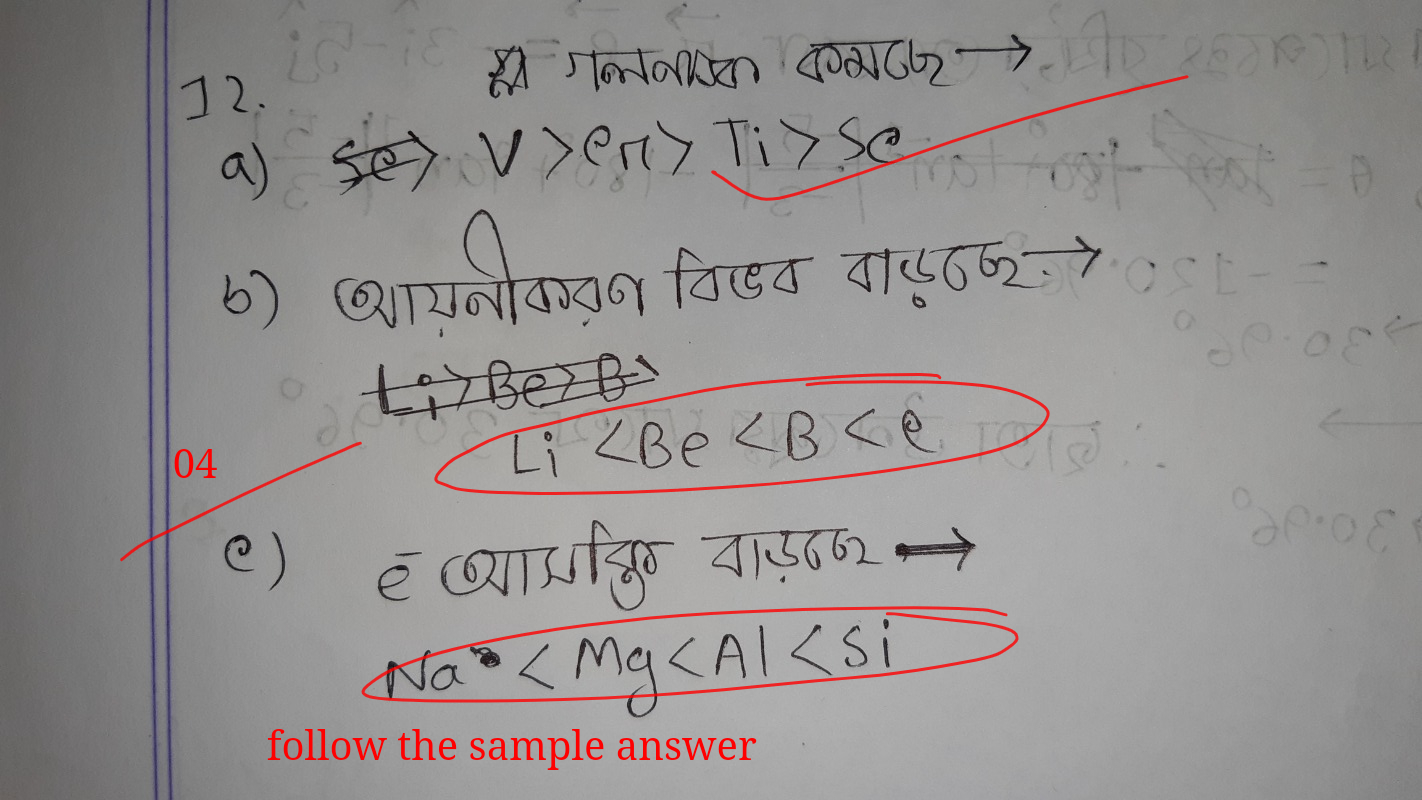 12. গলনাঙ্ক কমছে →
a) Se> V >er> Ti > Se
b) আয়নীকরণ বিভব বাড়ছে →
Li>Be>B>
Li <Be <B < e
04
c) ē আসক্তি বাড়ছে →
Na < Mg < Al < Si
follow the sample answer